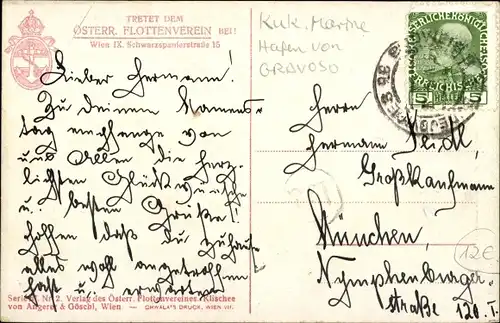 TRETET DEM
ÖSTERR. FLOTTENVEREIN BEI!
Wien IX. Schwarzspanierstraße 15
K.u.k. Marine
Hafen von
GRAVOSO
5 5
Lieber Hermann!
Zu Deinem Namens-
tag empfange von
uns Allen die herz-
lichsten Glückwünsche
u. besten Grüße!
hoffen daß du zuhause
alles wohl angetroffen
hast u. erwarten
Herrn
Hermann Seidl,
Großkaufmann
München,
Nymphenburger-
straße 120. I
12€
Serie Nr. 2. Verlag des Österr. Flottenvereines. Klischee
von Angerer & Göschl, Wien — CHWALA'S DRUCK, WIEN VII.